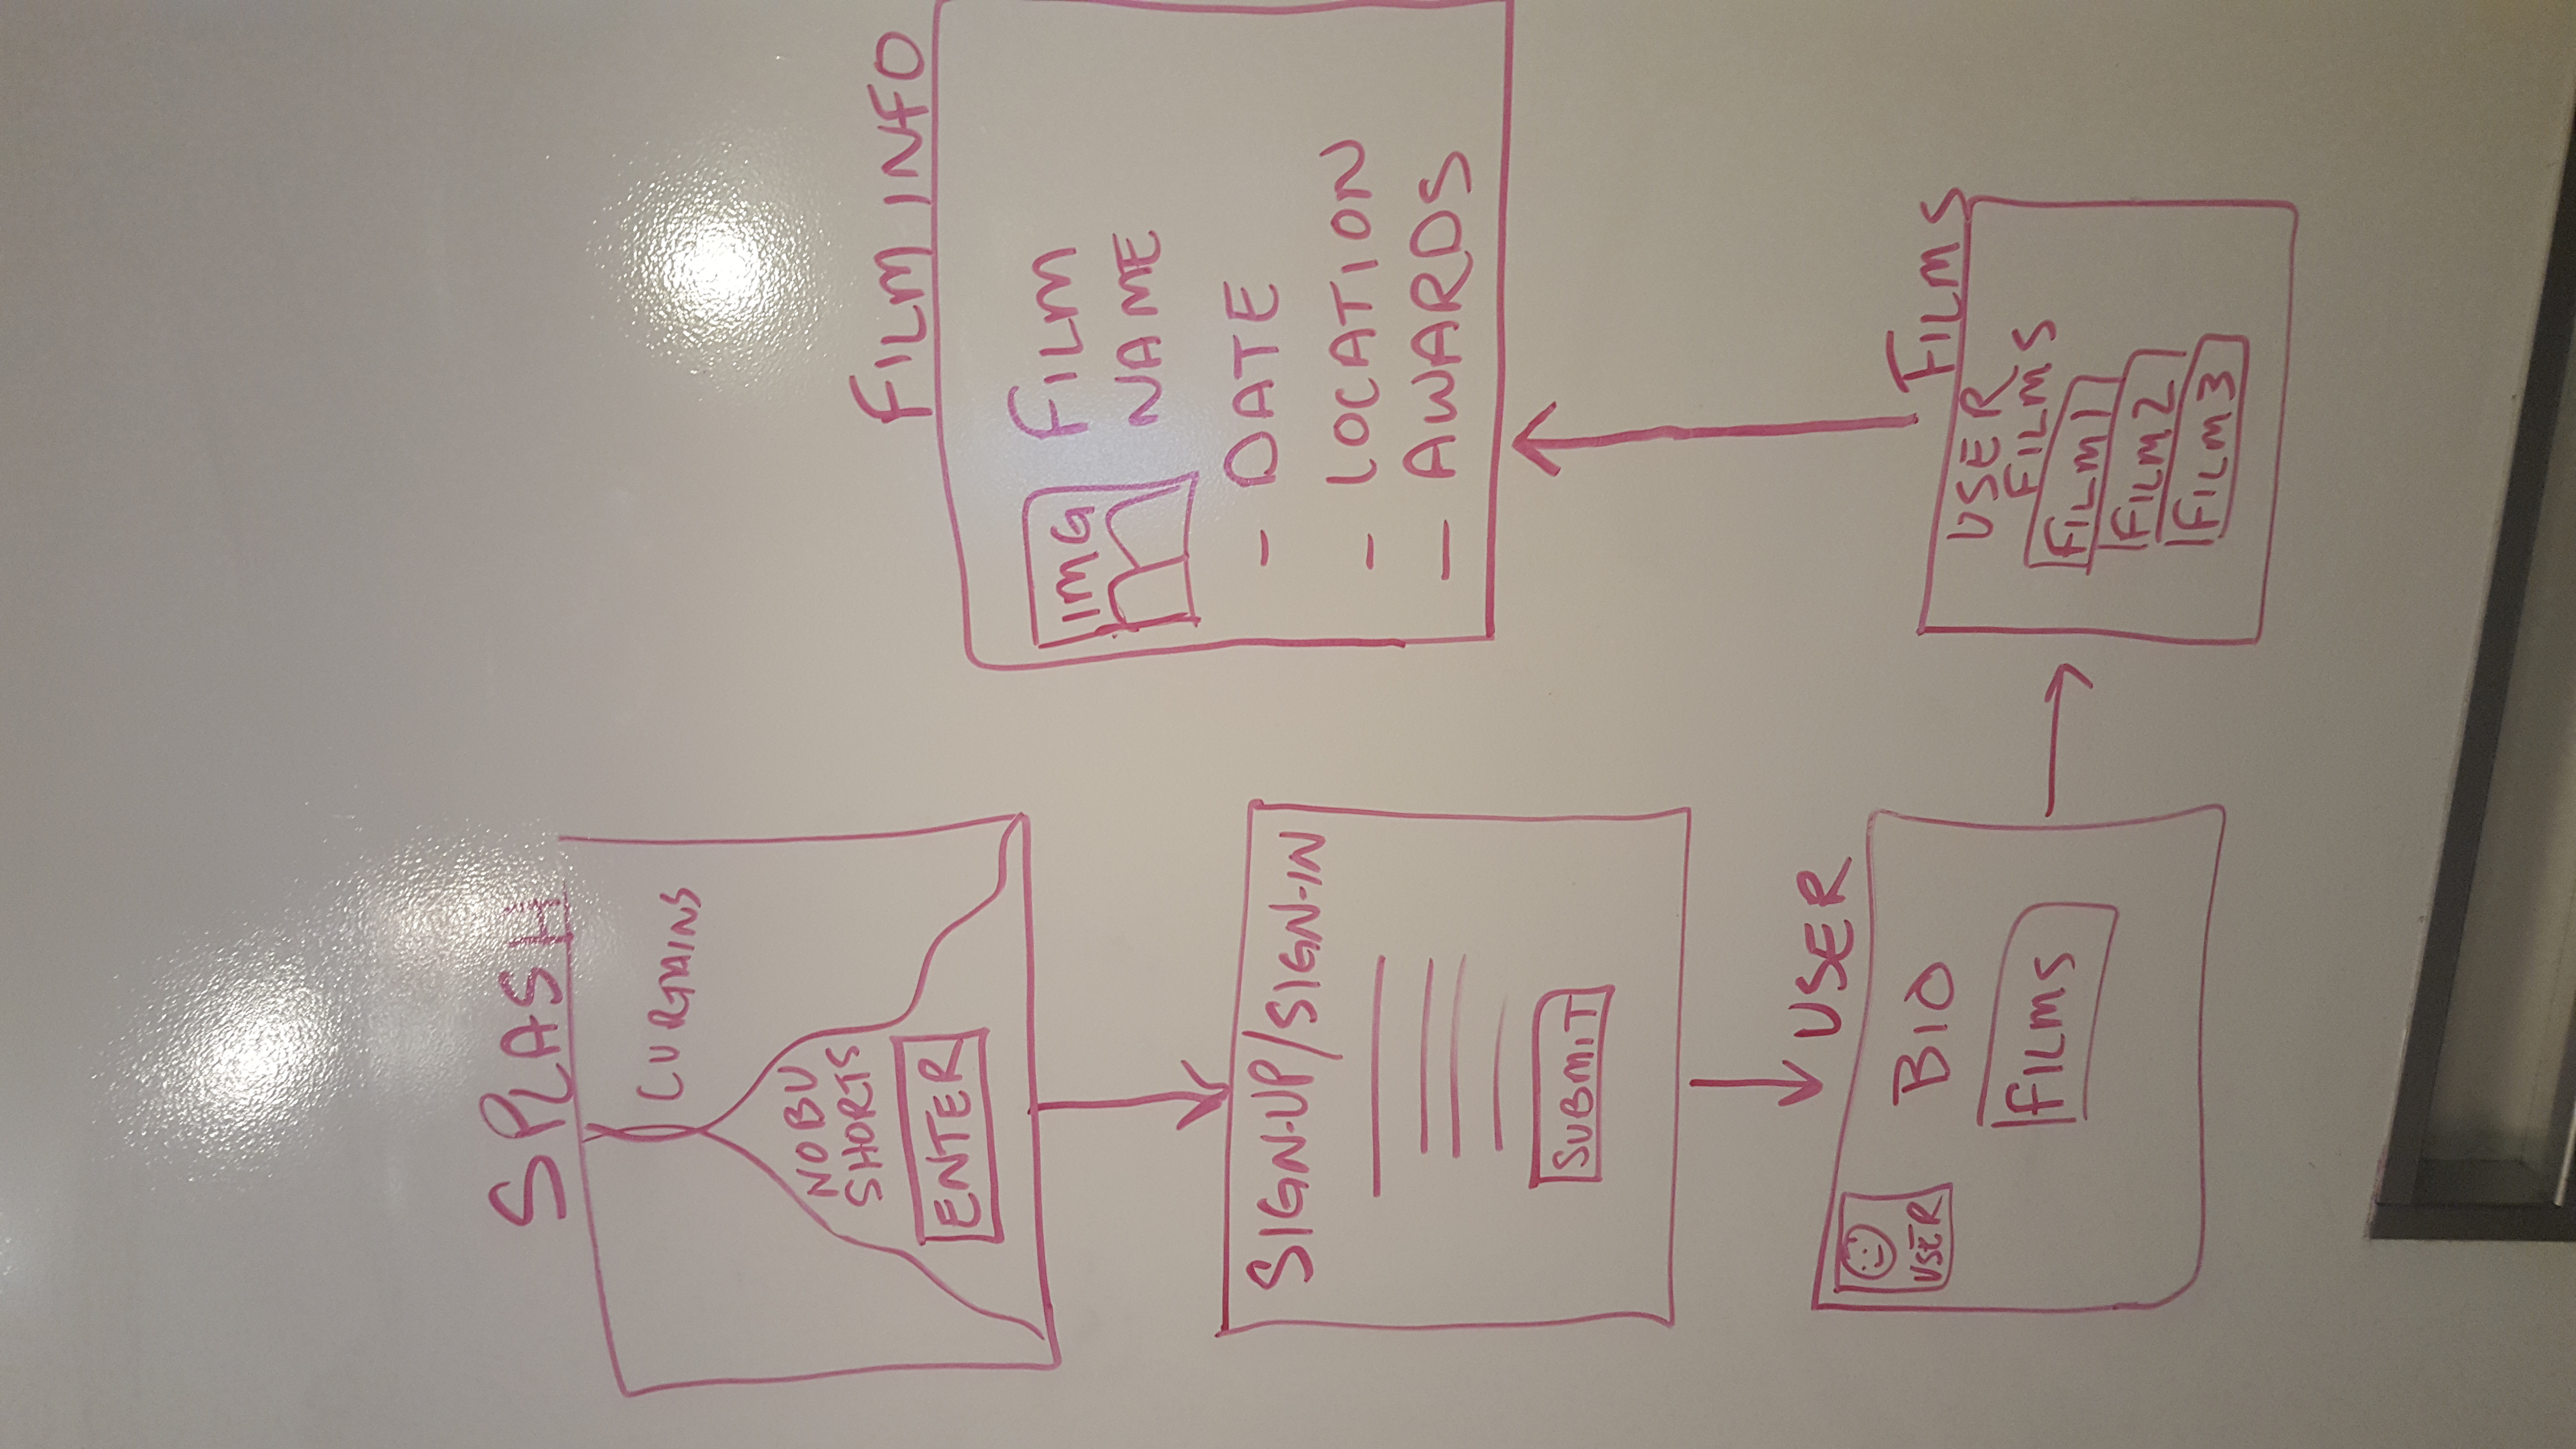 SPLASH
CURTAINS
NOBU
SHORTS
ENTER
SIGN-UP/SIGN-IN
SUBMIT
USER
USER
BIO
FILMS
FILMS
USER
FILMS
FILM1
FILM2
FILM3
FILM INFO
IMG
FILM
NAME
- DATE
- LOCATION
- AWARDS